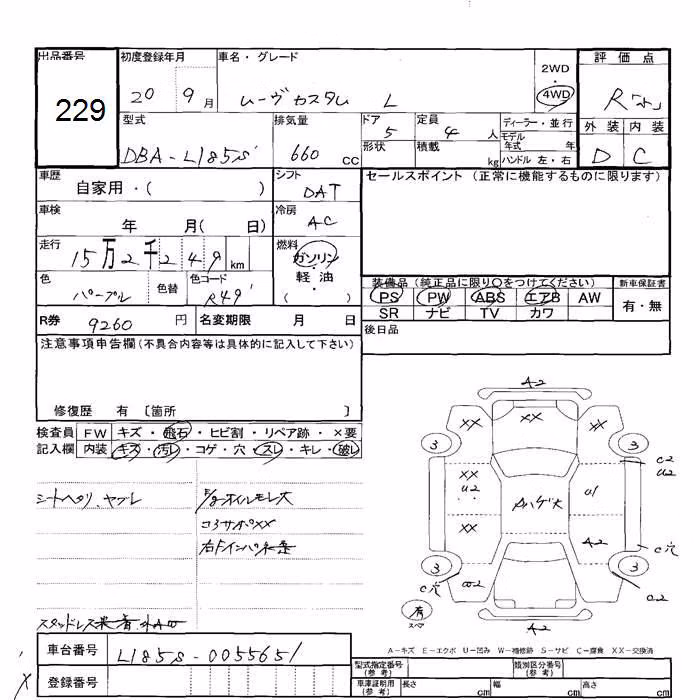 出品番号
229
初度登録年月
20 9月
車名・グレード
ムーヴカスタム L
2WD
4WD
評価点
R
外装 内装
D C
型式
DBA-L185S
排気量
660 cc
ドア
5
形状
定員
4 人
積載
kg
ディーラー・並行
モデル
年式 年
ハンドル 左・右
車歴
自家用・( )
シフト
DAT
セールスポイント (正常に機能するものに限ります)
車検
年 月( 日)
冷房
AC
走行
15万2千249 km
燃料
ガソリン
軽・油
( ・ )
色
パープル
色替
色コード
R49
装備品 (純正品に限り○をつけてください)
PS PW ABS エアB AW
SR ナビ TV カワ
新車保証書
有・無
R券 9260 円
名変期限 月 日
後日品
注意事項申告欄(不具合内容等は具体的に記入して下さい)
修復歴 有 〔箇所 〕
検査員
記入欄
FW キズ・飛石・ヒビ割・リペア跡・×要
内装 キズ・汚レ・コゲ・穴・スレ・キレ・破レ
シートヘタリ、ヤブレ
オイルモレ大
コアサポXX
スタッドレス
A2
XX
XX
XX
3
3
C2
U2
XX
U2
Aハゲ大
U1
XX
A2
3
3
C穴
C穴
C2
有
A2
A-キズ E-エクボ U-凹み W-補修跡 S-サビ C-腐食 XX-交換済
車台番号 L185S-0055651
登録番号
型式指定番号
(参考)
類別区分番号
(参考)
車庫証明用
(参考)
長さ cm
幅 cm
高さ cm